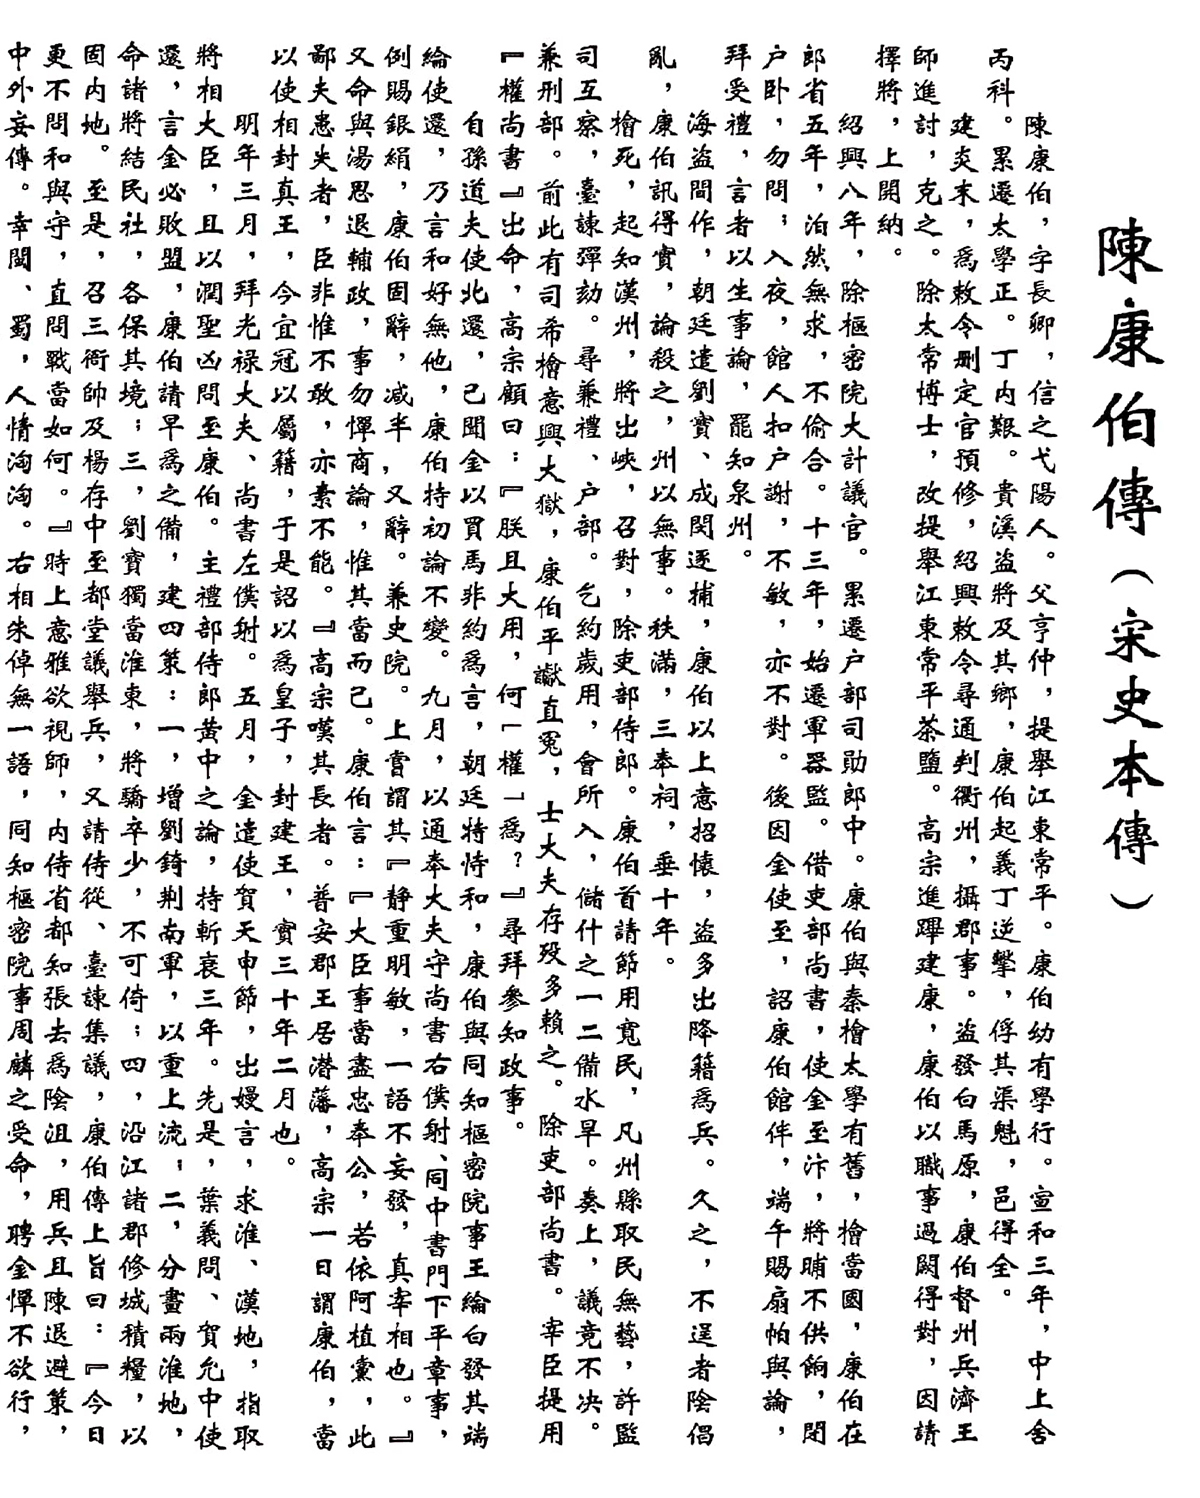 陳康伯傳（宋史本傳）
陳康伯，字長卿，信之弋陽人。父亨仲，提舉江東常平。康伯幼有學行。宣和三年，中上舍
丙科。累遷太學正。丁内艱。貴溪盗將及其鄉，康伯起義丁逆擊，俘其渠魁，邑得全。
建炎末，爲敕令删定官預修，紹興敕令尋通判衢州，攝郡事。盗發白馬原，康伯督州兵濟王
師進討，克之。除太常博士，改提舉江東常平茶鹽。高宗進蹕建康，康伯以職事過闕得對，因請
擇將，上開納。
紹興八年，除樞密院大計議官。累遷户部司勛郎中。康伯與秦檜太學有舊，檜當國，康伯在
郎省五年，泊然無求，不偷合。十三年，始遷軍器監。借吏部尚書，使金至汴，將晡不供餉，閉
户卧，勿問；入夜，館人扣户謝，不敏，亦不對。後因金使至，詔康伯館伴，端午賜扇帕與論，
拜受禮，言者以生事論，罷知泉州。
海盗間作，朝廷遣劉寶、成閔逐捕，康伯以上意招懷，盗多出降籍爲兵。久之，不逞者陰倡
亂，康伯訊得實，論殺之，州以無事。秩滿，三奉祠，垂十年。
檜死，起知漢州，將出峽，召對，除吏部侍郎。康伯首請節用寬民，凡州縣取民無藝，許監
司互察，臺諫彈劾。尋兼禮、户部。乞約歲用，會所入，儲什之一二備水旱。奏上，議竟不决。
兼刑部。前此有司希檜意興大獄，康伯平讞直冤，士大夫存殁多賴之。除吏部尚書。宰臣提用
『權尚書』出命，高宗顧曰：『朕且大用，何「權」爲？』尋拜參知政事。
自孫道夫使北還，已聞金以買馬非約爲言，朝廷特恃和，康伯與同知樞密院事王綸白發其端
綸使還，乃言和好無他，康伯持初論不變。九月，以通奉大夫守尚書右僕射、同中書門下平章事，
例賜銀絹，康伯固辭，减半，又辭。兼史院。上嘗謂其『静重明敏，一語不妄發，真宰相也。』
又命與湯思退輔政，事勿憚商論，惟其當而已。康伯言：『大臣事當盡忠奉公，若依阿植黨，此
鄙夫患失者，臣非惟不敢，亦素不能。』高宗嘆其長者。普安郡王居潜藩，高宗一日謂康伯，當
以使相封真王，今宜冠以屬籍，于是詔以爲皇子，封建王，實三十年二月也。
明年三月，拜光禄大夫、尚書左僕射。五月，金遣使賀天申節，出嫚言，求淮、漢地，指取
將相大臣，且以潤聖凶問至康伯。主禮部侍郎黄中之論，持斬衰三年。先是，葉義問、賀允中使
還，言金必敗盟，康伯請早爲之備，建四策：一，增劉錡荆南軍，以重上流；二，分畫兩淮地，
命諸將結民社，各保其境；三，劉寶獨當淮東，將驕卒少，不可倚；四，沿江諸郡修城積糧，以
固内地。至是，召三衙帥及楊存中至都堂議舉兵，又請侍從、臺諫集議，康伯傳上旨曰：『今日
更不問和與守，直問戰當如何。』時上意雅欲視師，内侍省都知張去爲陰沮，用兵且陳退避策，
中外妄傳。幸閩、蜀，人情洶洶。右相朱倬無一語，同知樞密院事周麟之受命，聘金憚不欲行，